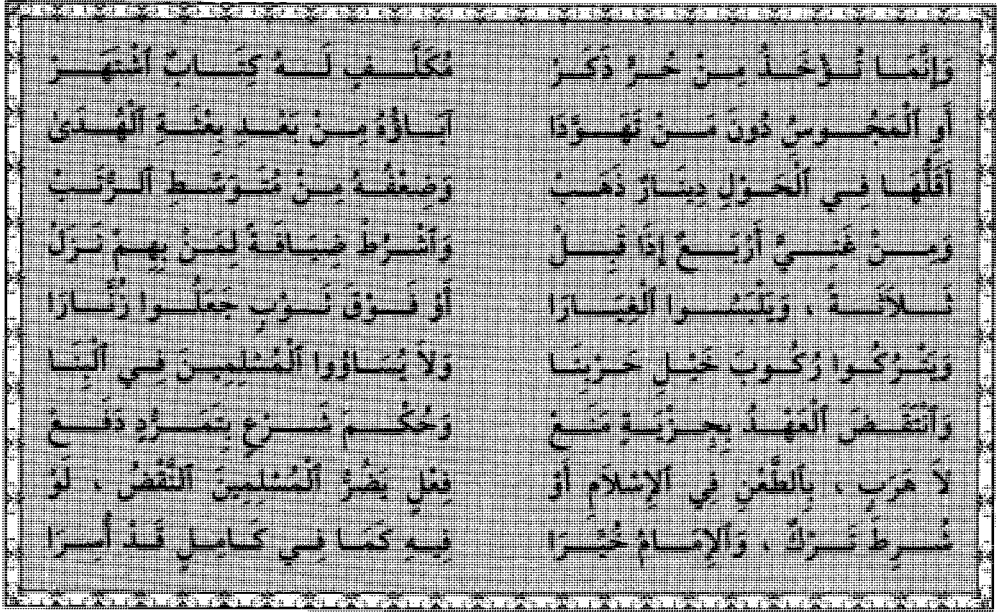 وَإِنَّمَا تُؤْخَذُ مِنْ حُرٍّ ذَكَرْ مُكَلَّفٍ لَهُ كِتَابٌ ٱشْتَهَرْ
أَوِ ٱلْمَجُوسُ دُونَ مَنْ تَهَوَّدَا آبَاؤُهُ مِنْ بَعْدِ بِعْثَةِ ٱلْهُدَىٰ
أَقَلُّهَا فِي ٱلْحَوْلِ دِينَارٌ ذَهَبْ وَضِعْفُهُ مِنْ مُتَوَسِّطِ ٱلرُّتَبْ
وَمِنْ غَنِيٍّ أَرْبَعٌ إِذَا قَبِلْ وَٱشْرُطْ ضِيَافَةً لِمَنْ بِهِمْ نَزَلْ
ثَلاَثَةً ، وَيَلْبَسُوا ٱلْغِيَارَا أَوْ فَوْقَ ثَوْبٍ جَعَلُوا زُنَّارَا
وَيَتْرُكُوا رُكُوبَ خَيْلِ حَرْبِنَا وَلاَ يُسَاوُوا ٱلْمُسْلِمِينَ فِي ٱلْبِنَا
وَٱنْتَقَضَ ٱلْعَهْدُ بِجِزْيَةٍ مَنَعْ وَحُكْمِ شَرْعٍ بِتَمَرُّدٍ دَفَعْ
لاَ هَرَبٍ ، بِٱلطَّعْنِ فِي ٱلإِسْلاَمِ أَوْ فِعْلٍ يَضُرُّ ٱلْمُسْلِمِينَ ٱلنَّقْضُ ، لَوْ
شُرِطَ تَرْكٌ ، وَٱلإِمَامُ خُيِّرَا فِيهِ كَمَا فِي كَامِلٍ قَدْ أُسِرَا